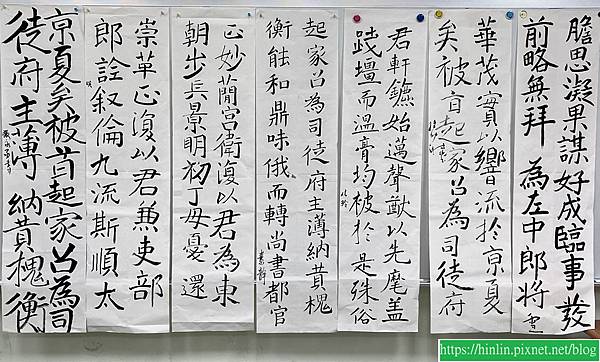 膽思凝果謀好成臨事發
前略無拜為左中郎將
華茂實以響流於京夏
矣被旨起家召為司徒府
君軒鑣始邁聲猷以先麾盖
踐壃而溫膏均被於是殊俗
起家召為司徒府主薄納贊槐
衡能和鼎味俄而轉尚書都官
正妙蕳宮衛復以君為東
朝步兵景明初丁母憂還
崇革正復以君兼吏部
郎詮叙倫九流斯順太
京夏矣被旨起家召為司
徒府主薄納贊槐衡
https://hinlin.pixnet.net/blog